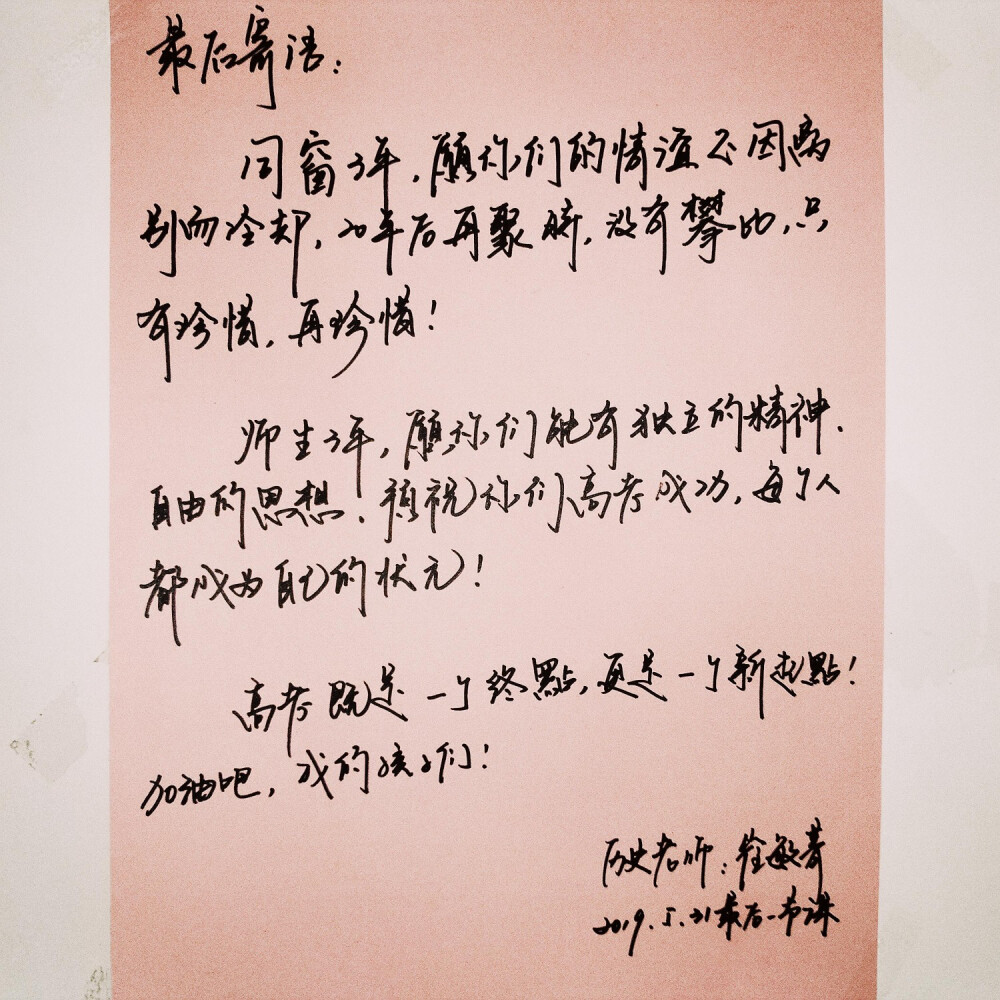 最后寄语：
同窗3年，愿你们的情谊不因离
别而冷却，20年后再聚时，没有攀比，只
有珍惜，再珍惜！
师生3年，愿你们能有独立的精神、
自由的思想。预祝你们高考成功，每个人
都成为自己的状元！
高考既是一个终點，更是一个新起點！
加油吧，我的孩子们！
历史老师：敏
2019.5.21最后一节课